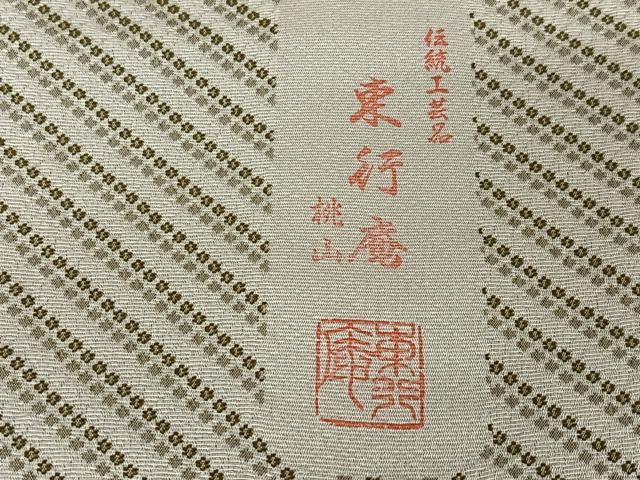 伝統工芸名
東行庵
桃山
東行庵